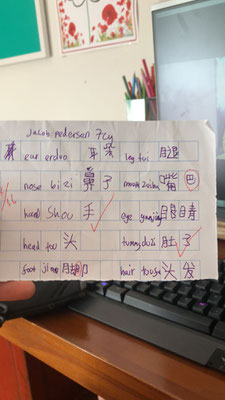 Jacob Pedersen 7Cy
ear erduo 耳朵 leg tui 腿
nose bizi 鼻子 mouth zuiba 嘴巴
hand Shou 手 eye yanjing 眼睛
head tou 头 tummy duzi 肚子
foot jiao 脚 hair toufa 头发